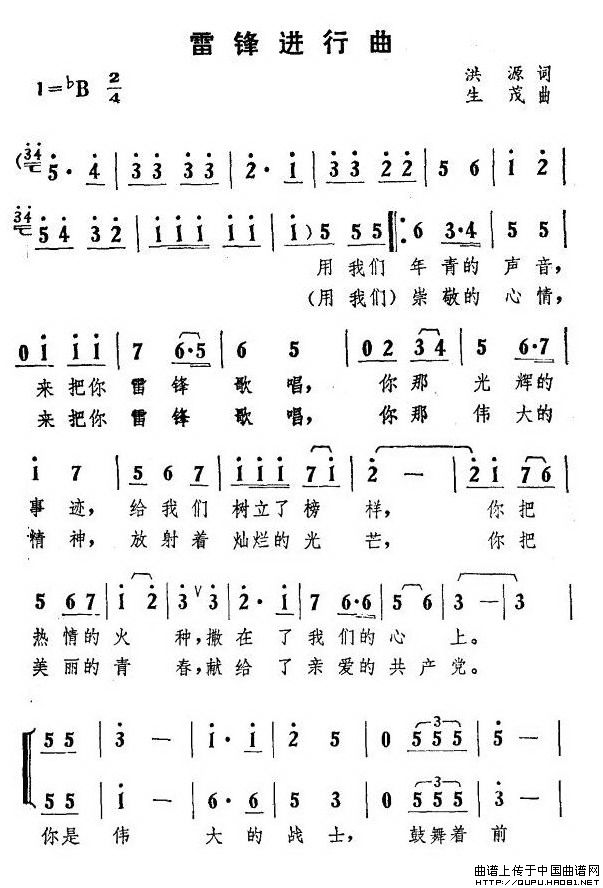 雷锋进行曲
1=♭B 2/4
洪源词
生茂曲
(34 5· 4 | 33 33 | 2· 1 | 33 22 | 5 6 | 1 2 |
34 54 32 | 11 11 | 1) 5 55 |: 6 3·4 | 5 5 |
用我们 年青的 声音,
(用我们) 崇敬的 心情,
0 1 1 1 | 7 6·5 | 6 5 | 0 2 3 4 | 5 6·7 |
来把你 雷锋 歌唱, 你那 光辉的
来把你 雷锋 歌唱, 你那 伟大的
1 7 | 5 6 7 | 1 1 1 7 1 | 2 — | 2 1 7 6 |
事迹, 给我们 树立了榜样, 你把
精神, 放射着 灿烂的光芒, 你把
5 6 7 | 1 2 | 3 ∨ 3 | 2· 1 | 7 6·6 | 5 6 | 3 — | 3
热情的火种,撒在了我们的心上。
美丽的青春,献给了亲爱的共产党。
5 5 | 3 — | 1· 1 | 2 5 | 0 5 5 5 |
5 5 | 1 — | 6· 6 | 5 3 | 0 5 5 5 |
你是 伟 大的 战士, 鼓舞着 前
曲谱上传于中国曲谱网
HTTP://QUPU.HAO81.NET